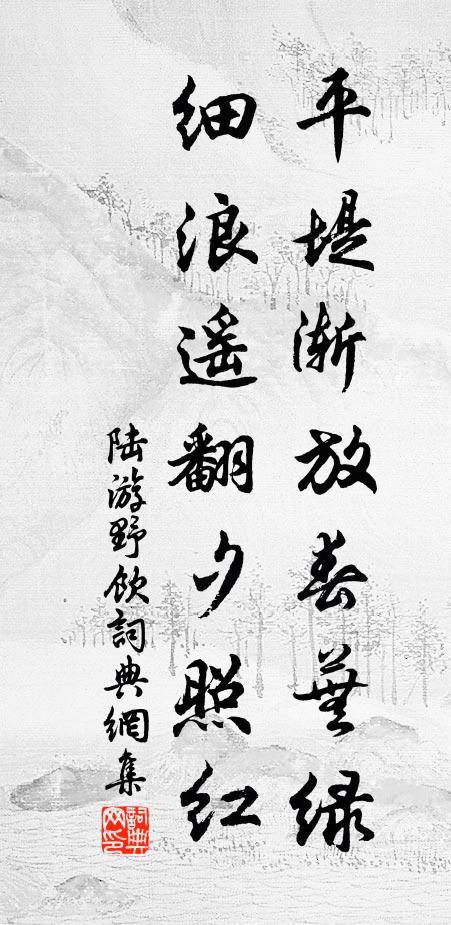 平堤渐放春蕪緑
细浪遥翻夕照红
陆游野飲詞典網集
詞典网印